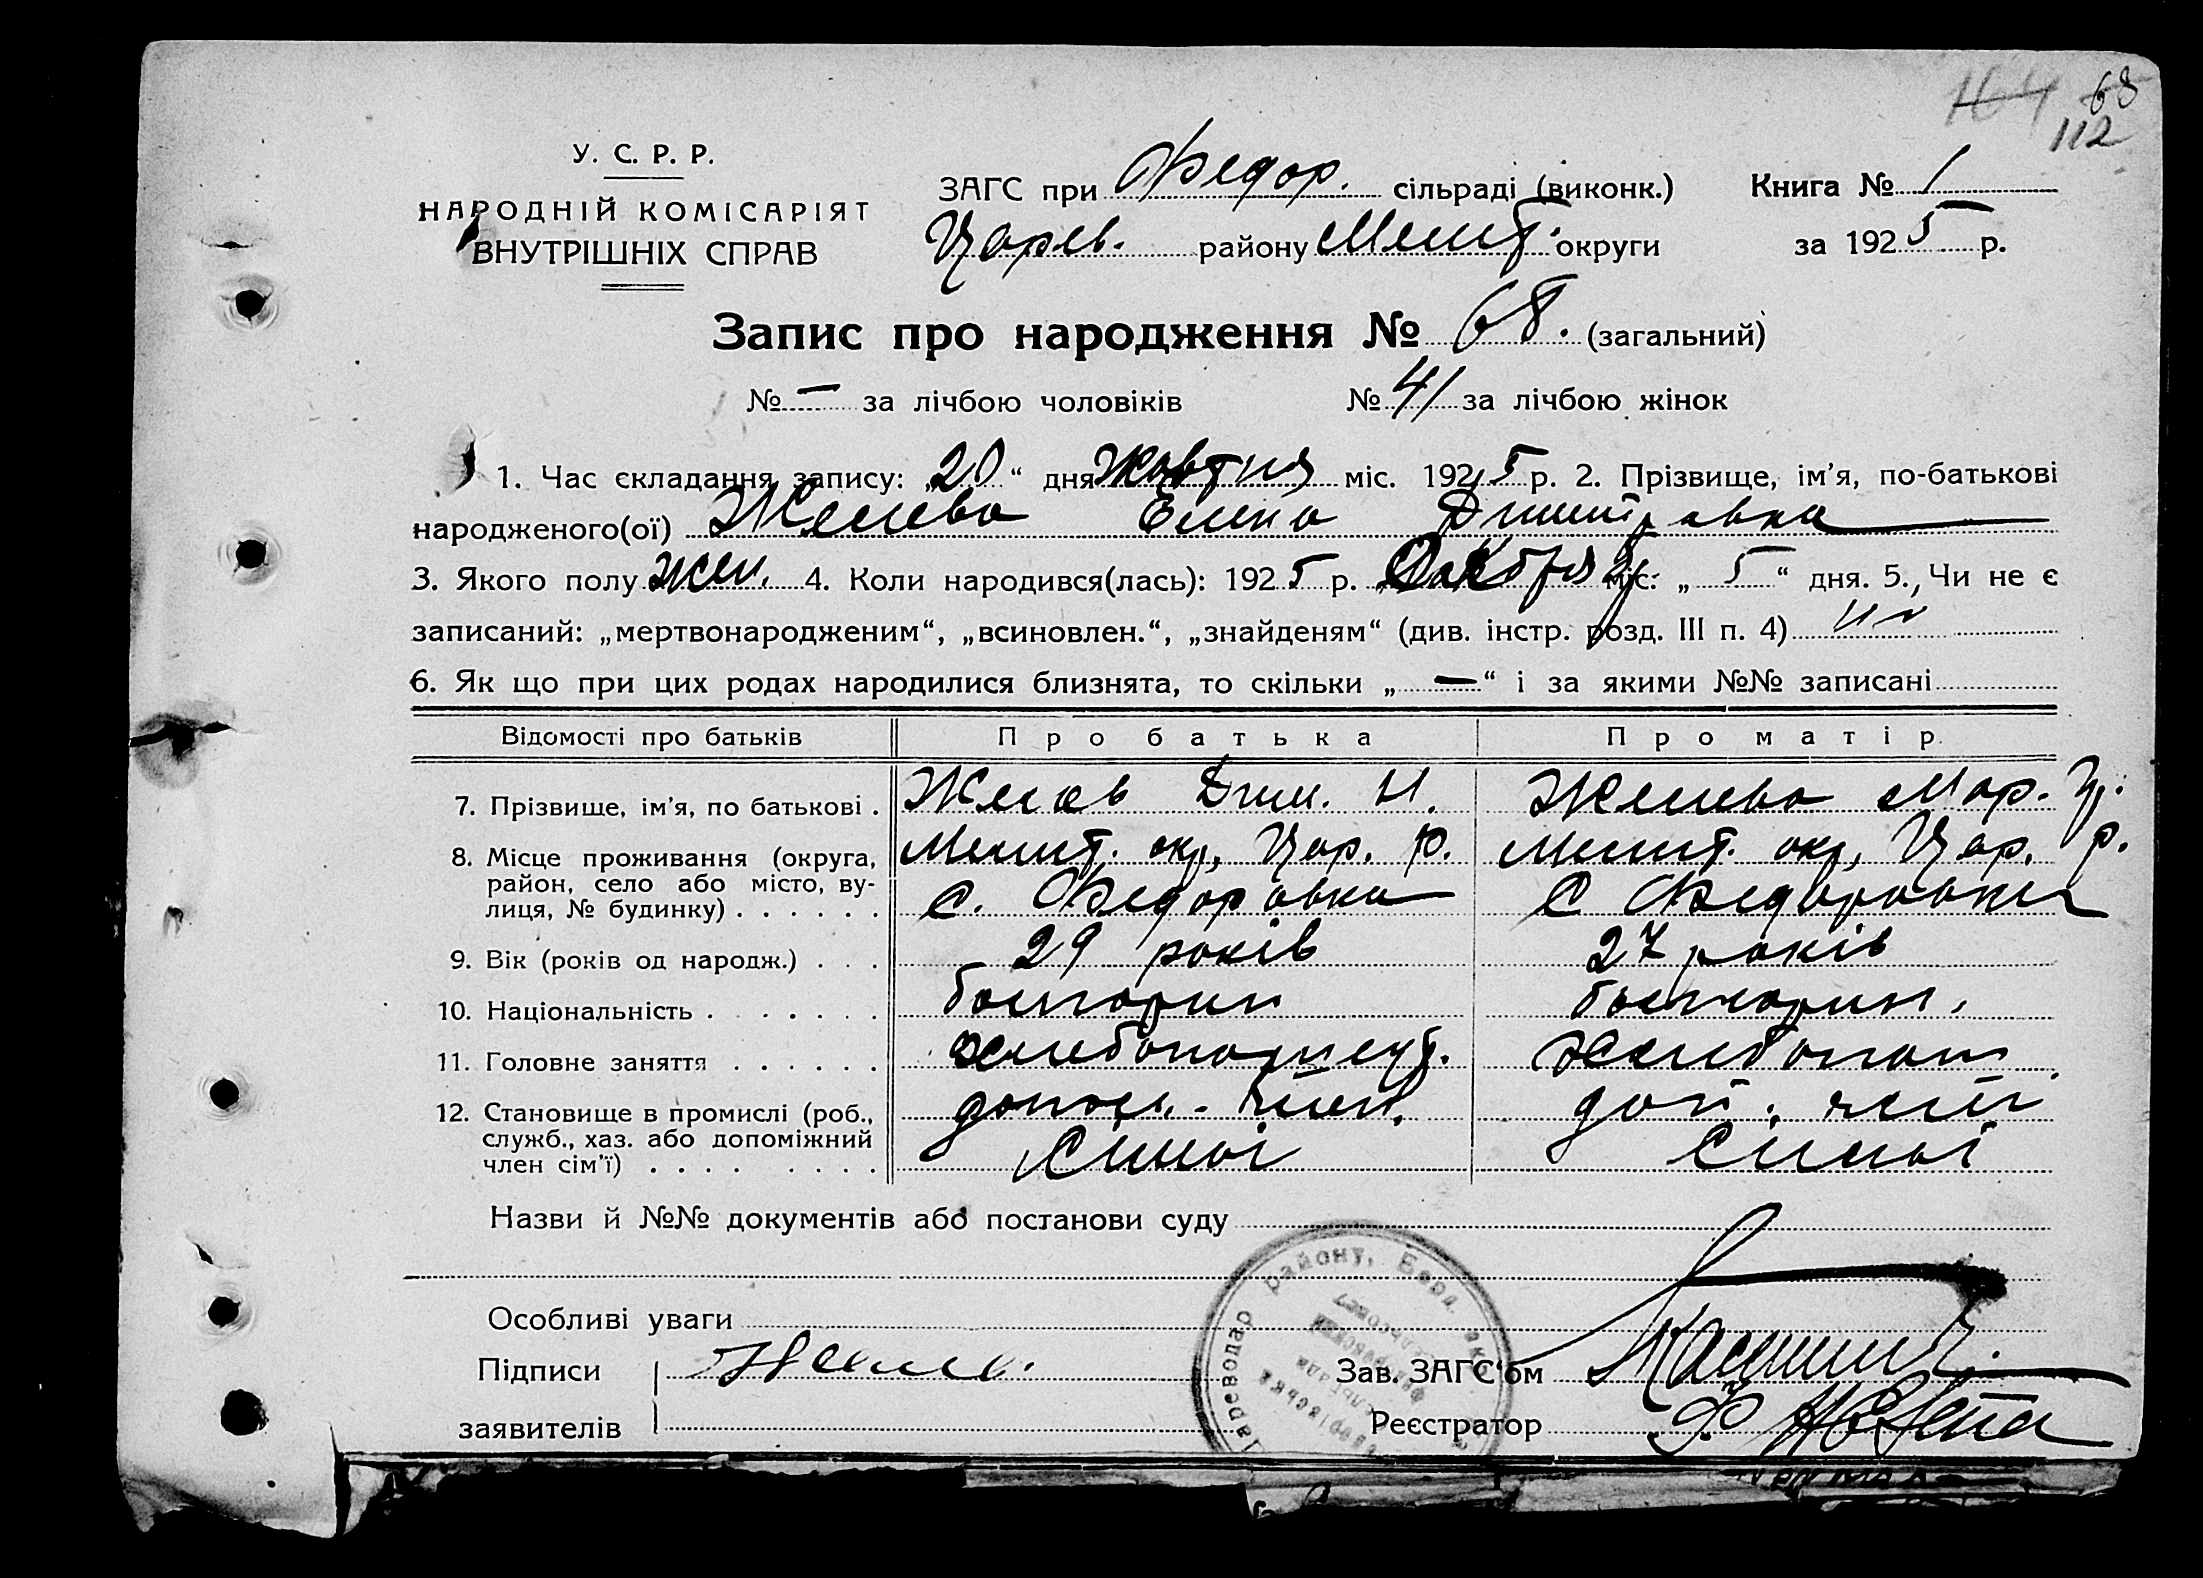 68
112
У. С. Р. Р.
НАРОДНІЙ КОМІСАРІЯТ
ВНУТРІШНІХ СПРАВ
ЗАГС при Федор. сільраді (виконк.) Книга № 1
Царев. району Мелит. округи за 1925 р.
Запис про народження № 68. (загальний)
№ — за лічбою чоловіків № 41 за лічбою жінок
1. Час складання запису: „20“ дня Жовтня міс. 1925 р. 2. Прізвище, ім'я, по-батькові
народженого(ої) Желева Елена Дмитровна
3. Якого полу жен. 4. Коли народився(лась): 1925 р. Октября міс. „5“ дня. 5. Чи не є
записаний: „мертвонародженим“, „всиновлен.“, „знайденям“ (див. інстр. розд. III п. 4)
6. Як що при цих родах народилися близнята, то скільки „—“ і за якими №№ записані
Відомості про батьків Про батька Про матір
7. Прізвище, ім'я, по батькові . Желев Дим. И. Желева Мар.
8. Місце проживання (округа, Мелит. окр, Цар. р. Мелит. окр, Цар. р.
район, село або місто, ву-
лиця, № будинку) . . . . . . с. Федоровка С Федоровка
9. Вік (років од народж.) . . . 29 років 27 років
10. Національність . . . . . . . болгарин болгарин.
11. Головне заняття . . . . . .
12. Становище в промислі (роб.,
служб., хаз. або допоміжний
член сім'ї) . . . . . . . . . сімьі сімьі
Назви й №№ документів або постанови суду
Особливі уваги
Підписи Желев.
заявителів
Зав. ЗАГС'ом
Реєстратор
Цареводар району, Берд. окр